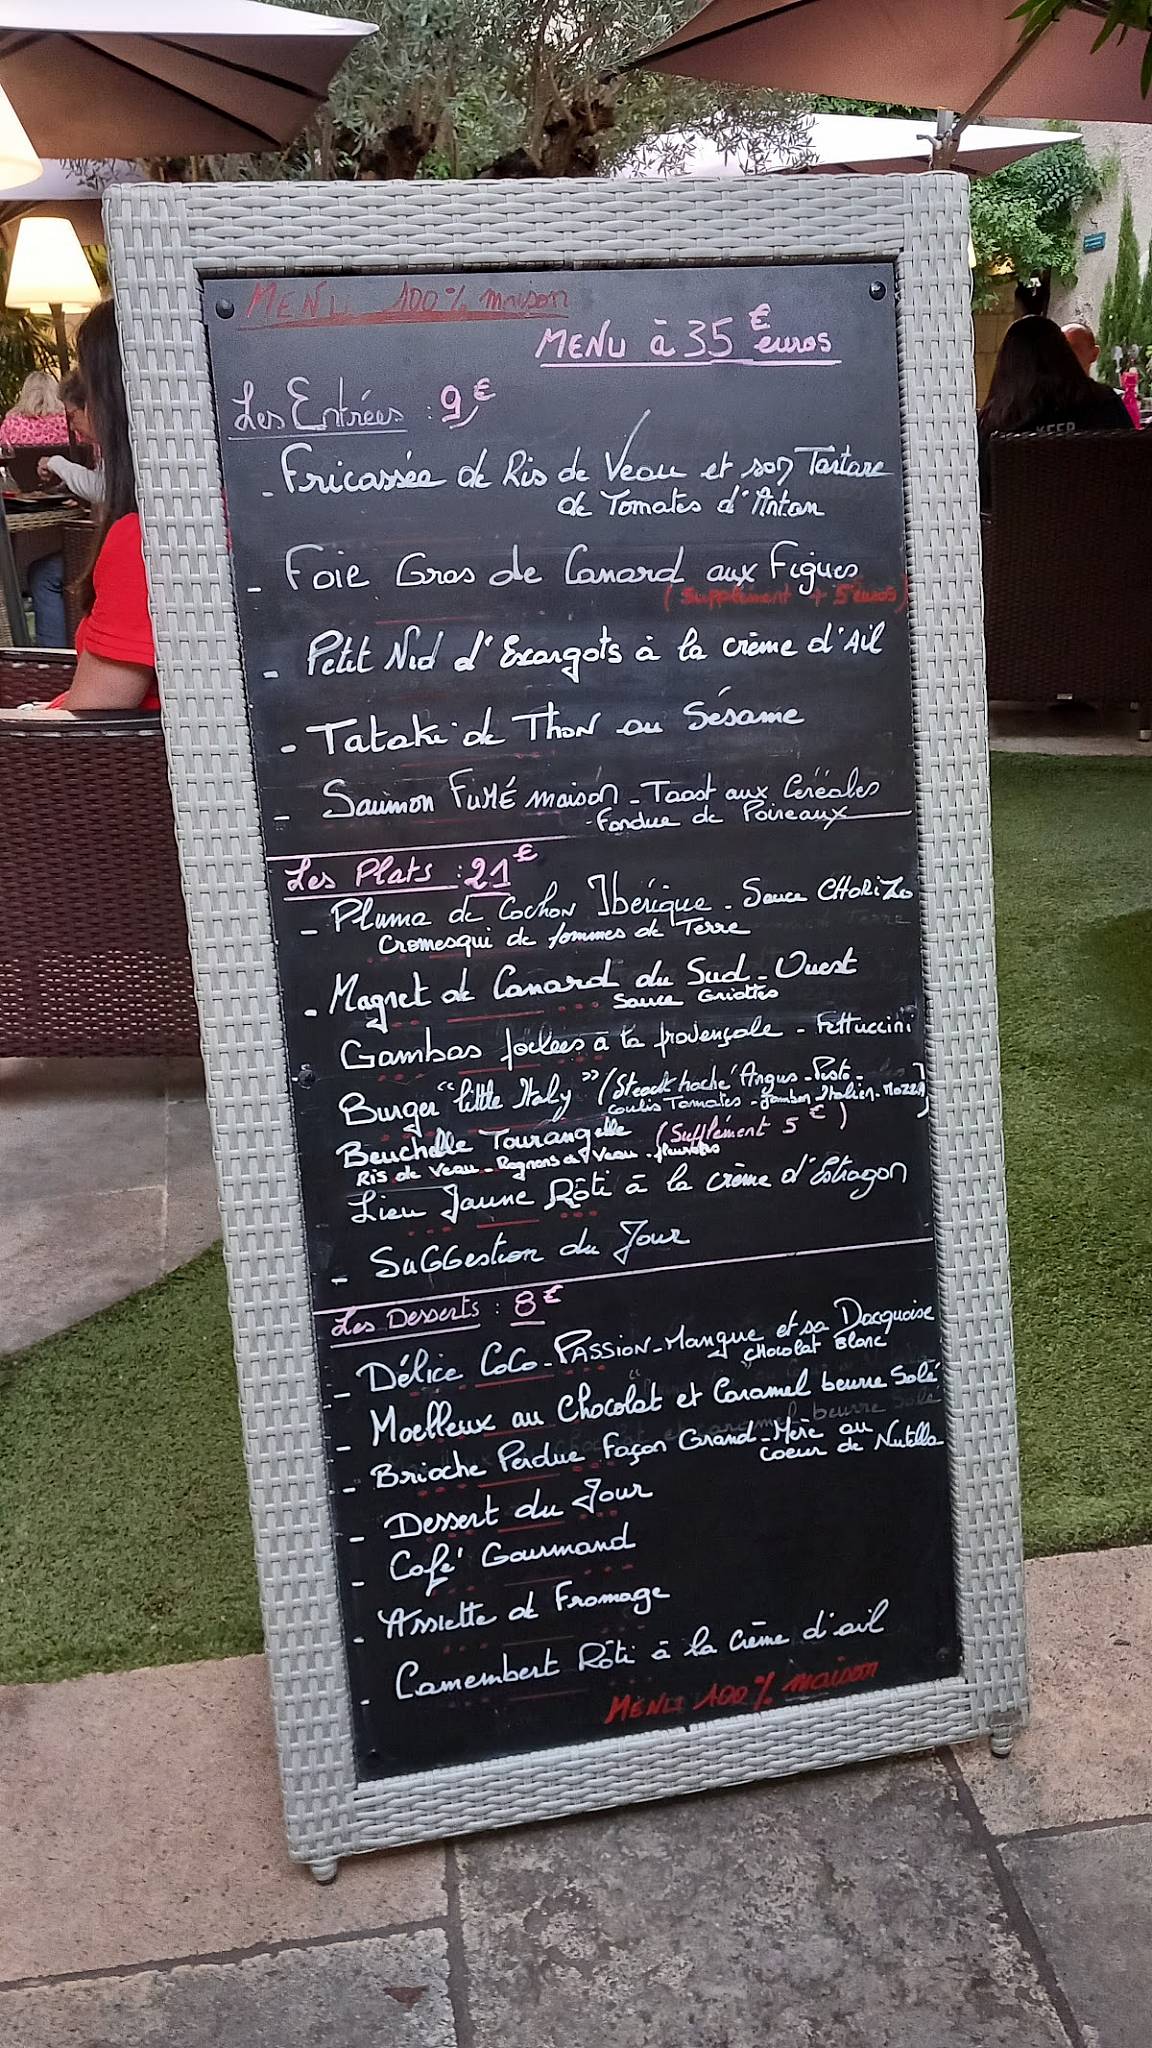 MENU 100% maison
MENU à 35 € euros
Les Entrées : 9€
- Fricassée de Ris de Veau et son Tartare
de Tomates d'Antan
- Foie Gras de Canard aux Figues
(Supplément + 5 euros)
- Petit Nid d'Escargots à la crème d'Ail
- Tataki de Thon au Sésame
- Saumon Fumé maison - Toast aux Céréales
- Fondue de Poireaux
Les Plats : 21€
- Pluma de Cochon Ibérique - Sauce CHORIZO
Cromesqui de Pommes de Terre
- Magret de Canard du Sud-Ouest
Sauce Griottes
Gambas poelees a la provençale - Fettuccini
Burger "little Italy" (Steack haché Angus - Pesto -
coulis Tomates - Jambon Italien - MOZZA)
Beuchelle Tourangelle (Supplément 5 €)
Ris de Veau - Rognons de Veau - pleurotes
Lieu Jaune Rôti à la crème d'Estragon
- SuGGestion du Jour
Les Desserts : 8€
- Délice CoCo - PASSION - Mangue et sa Dacquoise
CHocolat Blanc
- Moelleux au Chocolat et Caramel beurre Salé
- Brioche Perdue Façon Grand-Mère au
Coeur de Nutella
- Dessert du Jour
- Café Gourmand
- Assiette de Fromage
- Camembert Rôti à la Crème d'ail
MENU 100% maison
KEEP